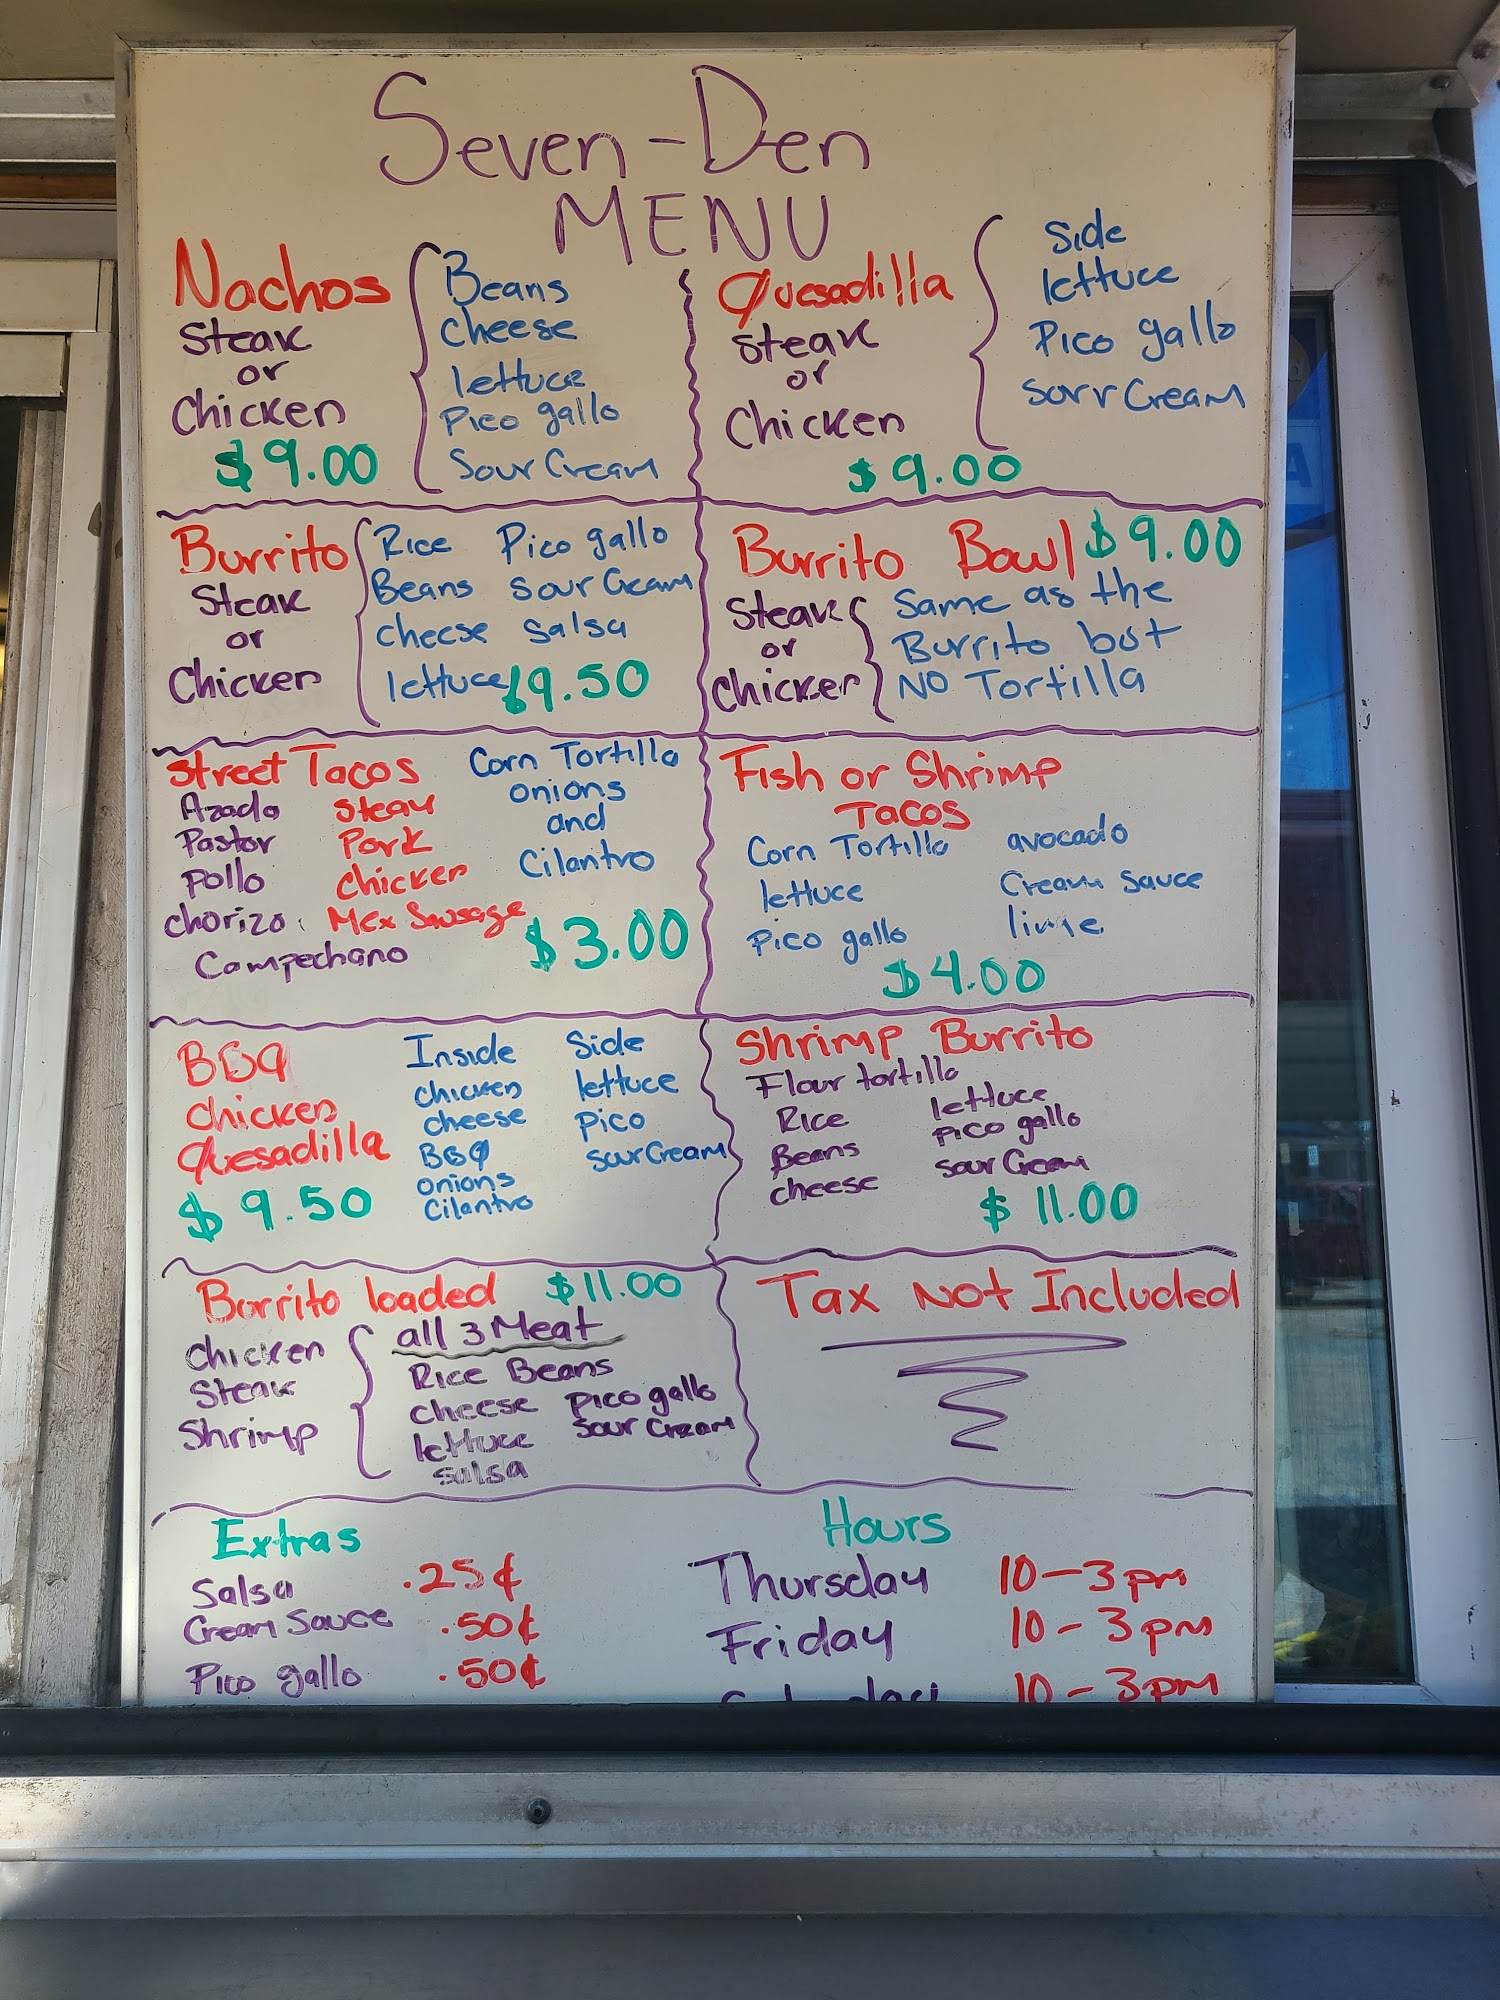 Seven-Den
MENU
Nachos
Steak
or
Chicken
$9.00
Beans
Cheese
lettuce
Pico gallo
Sour Cream
Quesadilla
Steak
or
Chicken
$9.00
Side
lettuce
Pico gallo
Sour Cream
Burrito
Steak
or
Chicken
Rice Pico gallo
Beans Sour Cream
cheese Salsa
lettuce $9.50
Burrito Bowl $9.00
Steak
or
Chicken
Same as the
Burrito but
NO Tortilla
Street Tacos
Azada Steak
Pastor Pork
Pollo Chicken
Chorizo Mex Sausage
Campechano
Corn Tortilla
onions
and
Cilantro
$3.00
Fish or Shrimp
Tacos
Corn Tortilla avocado
lettuce Cream Sauce
Pico gallo lime
$4.00
BBQ
Chicken
Quesadilla
$9.50
Inside
Chicken
cheese
BBQ
onions
Cilantro
Side
lettuce
Pico
Sour Cream
Shrimp Burrito
Flour tortilla
Rice lettuce
Beans Pico gallo
cheese Sour Cream
$11.00
Burrito loaded $11.00
Chicken
Steak
Shrimp
all 3 Meat
Rice Beans
cheese Pico gallo
lettuce Sour Cream
salsa
Tax Not Included
Extras
Salsa .25¢
Cream Sauce .50¢
Pico gallo .50¢
Hours
Thursday 10-3pm
Friday 10-3pm
10-3pm